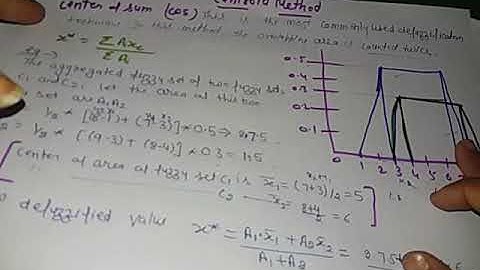 Center of sum (cos) This is the most commonly used defuzzification
technique. In this method the overlapping area is counted twice.
x* = Σ Ai xc / Σ Ai
Eg →
The aggregated fuzzy set of two fuzzy sets
C1 and C2. Let the area of this two
set are A1, A2
1/2 * [(8-1)+(7-3)] * 0.5 ⇒ 2.75
= 1/2 * [(9-3)+(8-4)] * 0.3 = 1.5
Center of area of fuzzy set C1 is x̄1 = (7+3)/2 = 5
C2 x̄2 = 8+4/2 = 6
defuzzified value x* = A1.x̄1 + A2 x̄2 / A1+A2 = 2.75
0.5
0.4
0.3
0.2
0.1
0 1 2 3 4 5 6 7 8